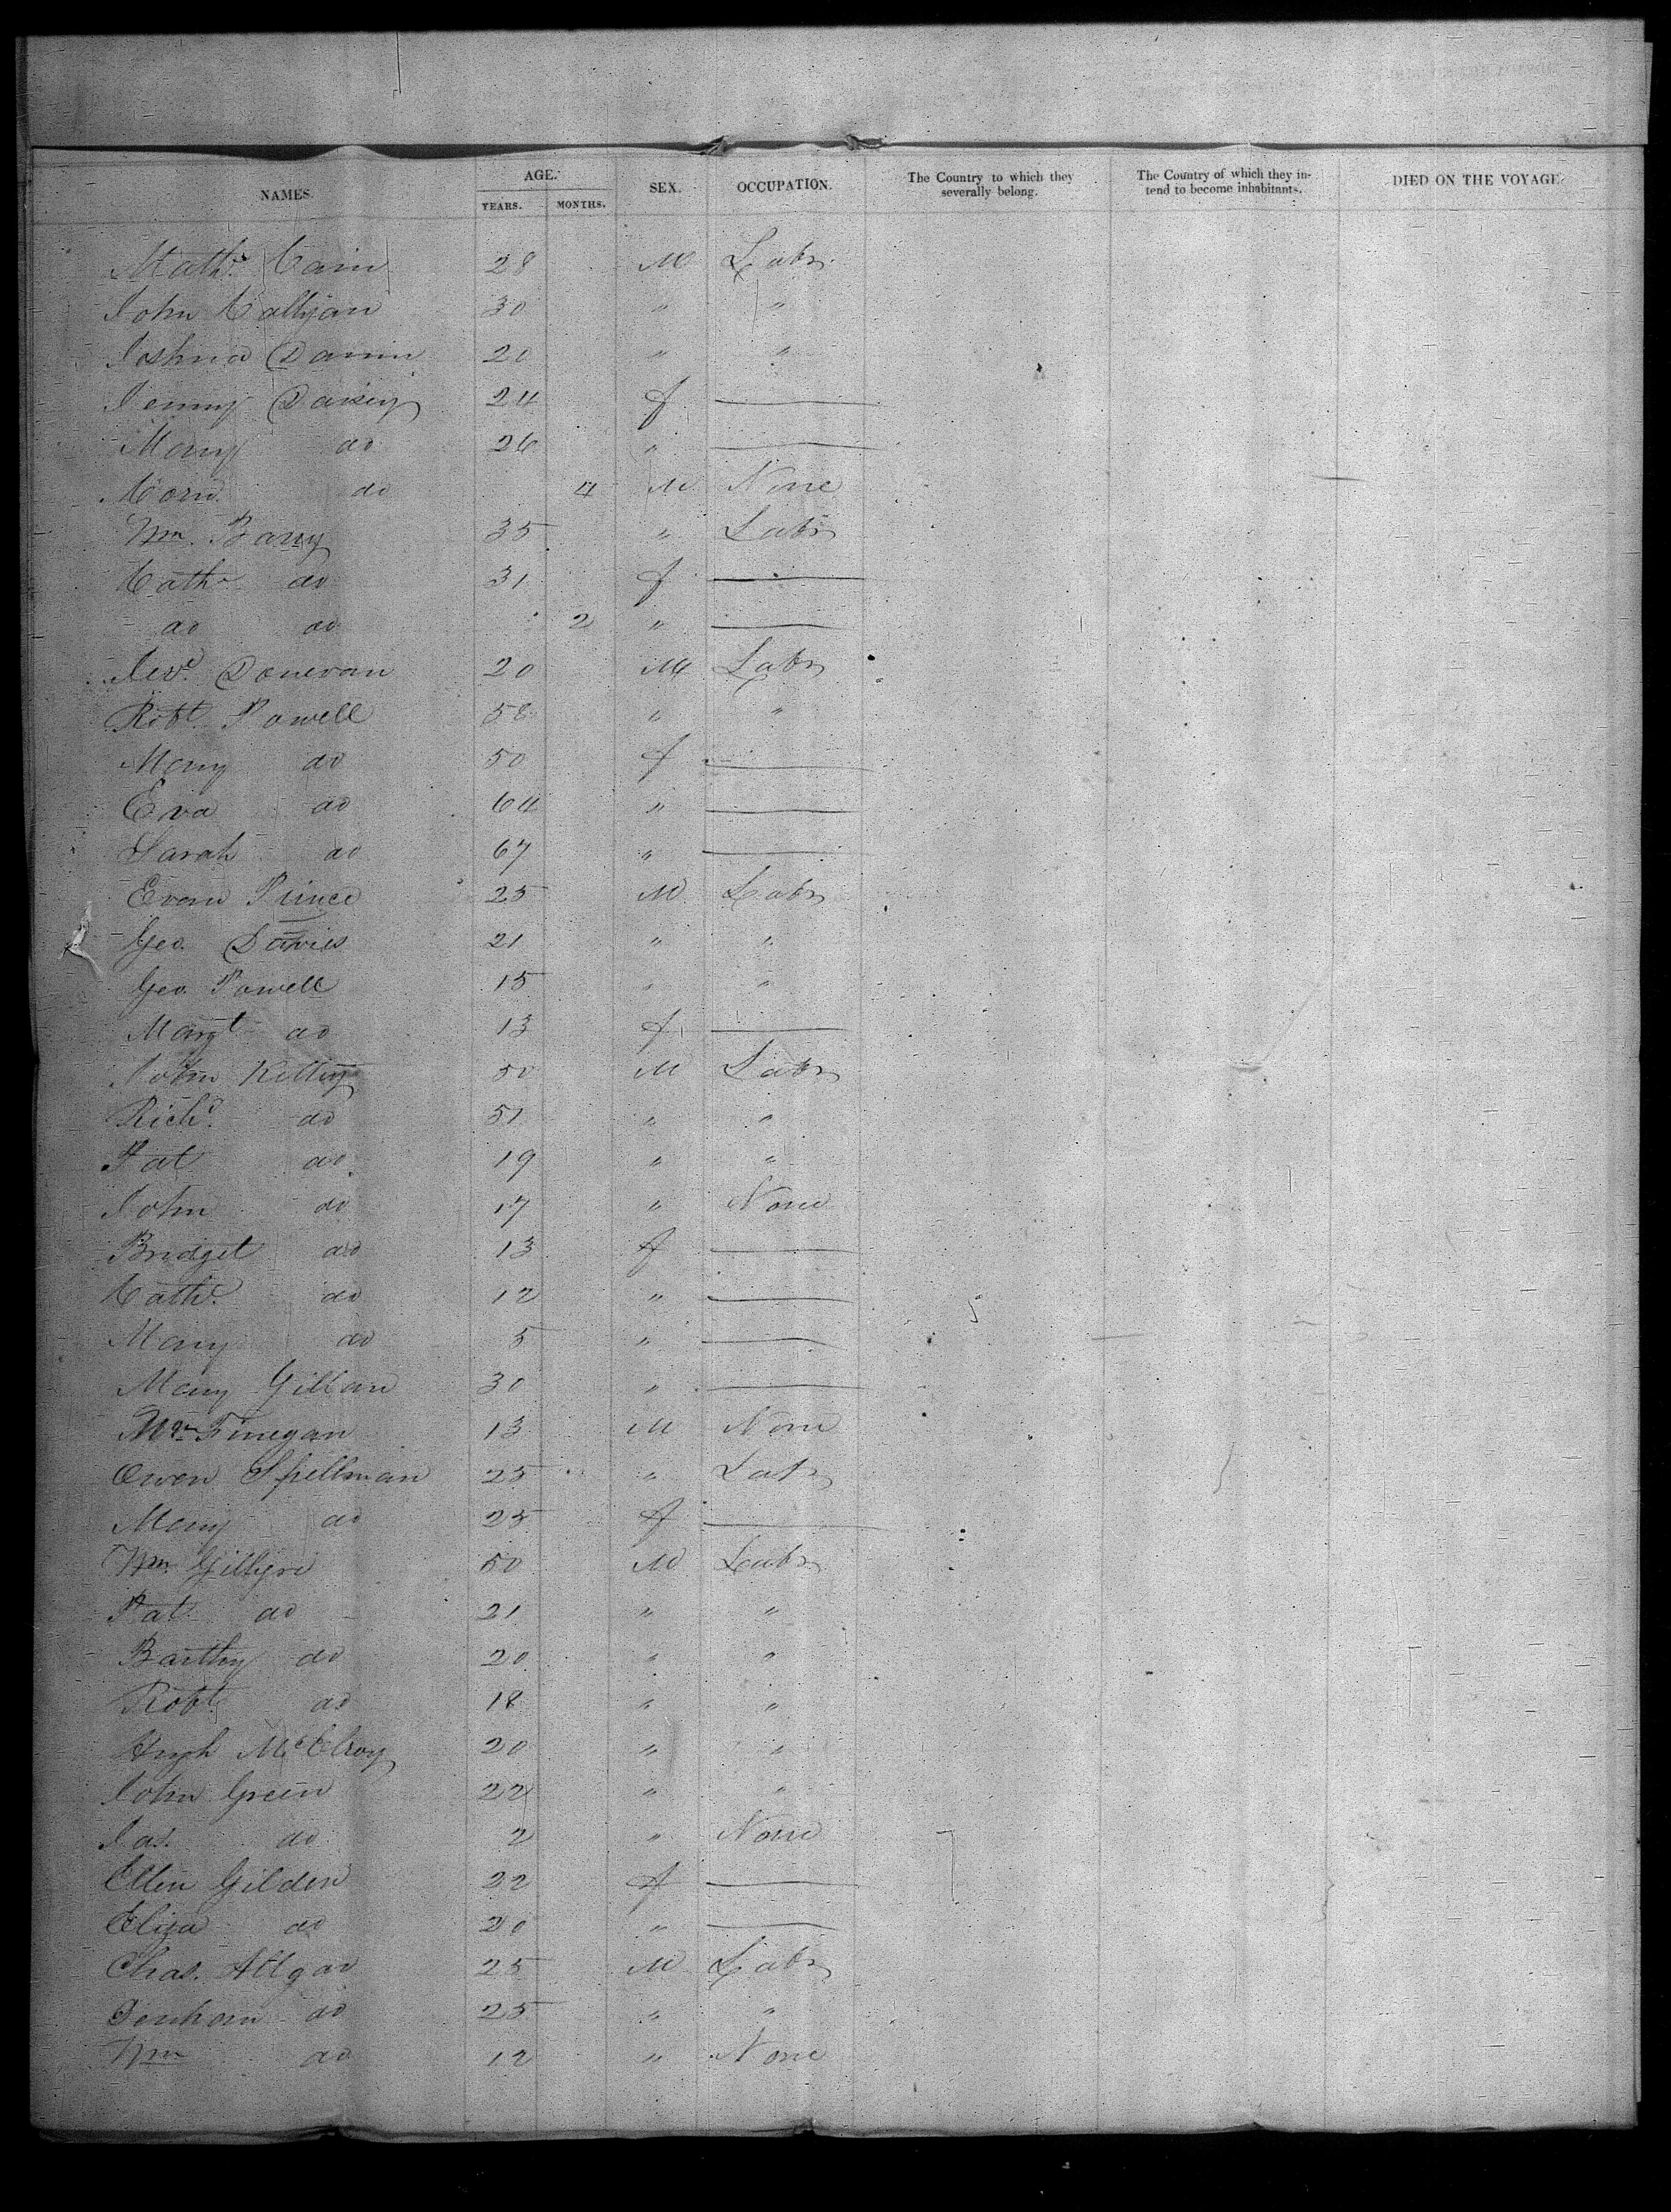 NAMES. AGE. YEARS. MONTHS. SEX. OCCUPATION. The Country to which they severally belong. The Country of which they intend to become inhabitants. DIED ON THE VOYAGE.
Math. Cain 28 M Labr
John Callyan 30 " "
Joshua 20 " "
Jenny Daisey 24 f —
Mary do 26 " —
Corn. do 4 M None
Wm. Barry 35 " Labr
Cath do 31 f —
do do 2 " —
Jerd. Donevan 20 M Labr
Robt. Powell 58 " "
Mary do 50 f —
Eva do 64 " —
Sarah do 67 " —
Evan Prince 25 M Labr
Geo. Davies 21 " "
Geo. Powell 15 " "
Margt do 13 f —
John 50 M Labr
Richd. do 51 " "
Pat do 19 " "
John do 17 " None
Bridget do 13 f —
Cath. do 12 " —
Mary do 5 " —
Mary Gillan 30 " —
Finegan 13 M None
Owen Spellman 25 " Labr
Mary do 25 f —
Wm. 50 M Labr
Pat do 21 " "
Barthy do 20 " "
Robt do 18 " "
Hugh McElroy 20 " "
John Green 22 " "
Jas. do 2 " None
Ellen Gilden 22 f —
Eliza do 20 " —
Chas. Allgar 25 M Labr
do 25 " "
Wm do 12 " None